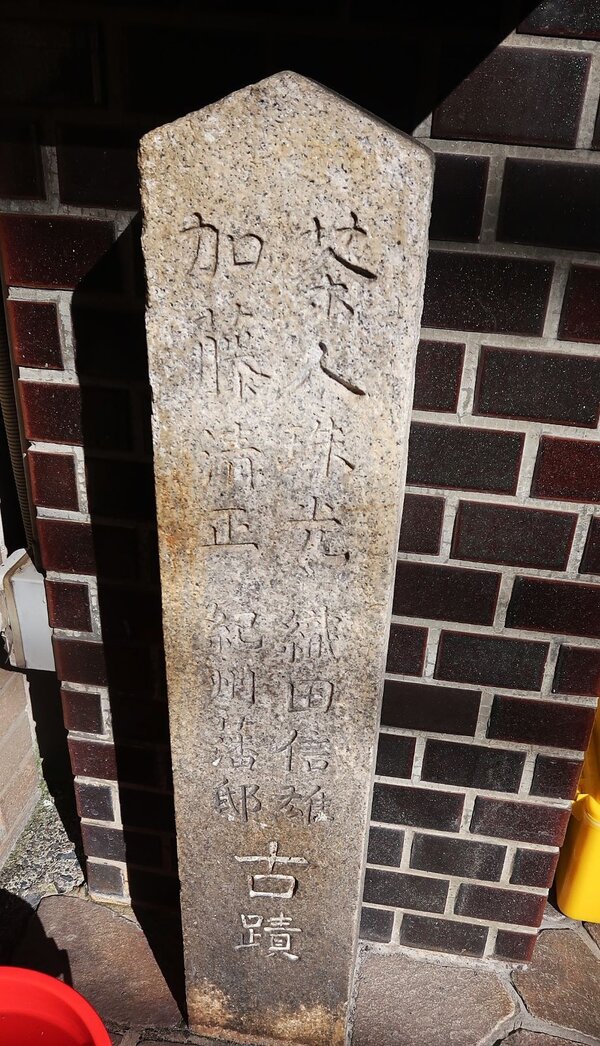 茶人珠光 織田信雄
加藤清正 紀州藩邸
古蹟